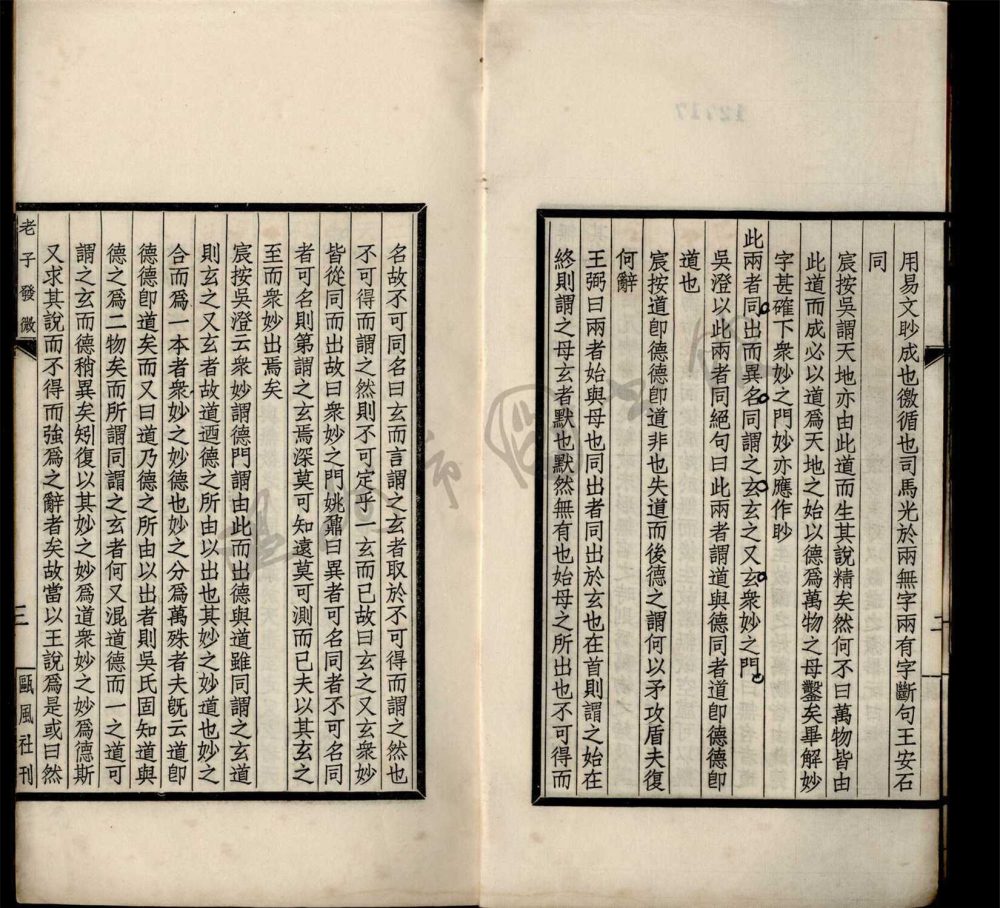 用易文眇成也徼循也司馬光於兩無字兩有字斷句王安石
同
宸按吳謂天地亦由此道而生其說精矣然何不曰萬物皆由
此道而成必以道爲天地之始以德爲萬物之母鑿矣畢解妙
字甚確下衆妙之門妙亦應作眇
此兩者同出而異名同謂之玄玄之又玄衆妙之門
吳澄以此兩者同絕句曰此兩者謂道與德同者道卽德德卽
道也
宸按道卽德德卽道非也失道而後德之謂何以矛攻盾夫復
何辭
王弼曰兩者始與母也同出者同出於玄也在首則謂之始在
終則謂之母玄者默也默然無有也始母之所出也不可得而
二
名故不可同名曰玄而言謂之玄者取於不可得而謂之然也
不可得而謂之然則不可定乎一玄而已故曰玄之又玄衆妙
皆從同而出故曰衆妙之門姚鼐曰異者可名同者不可名同
者可名則第謂之玄焉深莫可知遠莫可測而已夫以其玄之
至而衆妙出焉矣
宸按吳澄云衆妙謂德門謂由此而出德與道雖同謂之玄道
則玄之又玄者故道迺德之所由以出也其妙之妙道也妙之
合而爲一本者衆妙之妙德也妙之分爲萬殊者夫旣云道卽
德德卽道矣而又曰道乃德之所由以出者則吳氏固知道與
德之爲二物矣而所謂同謂之玄者何又混道德而一之道可
謂之玄而德稍異矣矧復以其妙之妙爲道衆妙之妙爲德斯
又求其說而不得而強爲之辭者矣故當以王說爲是或曰然
老子發微
三
甌風社刊
12717